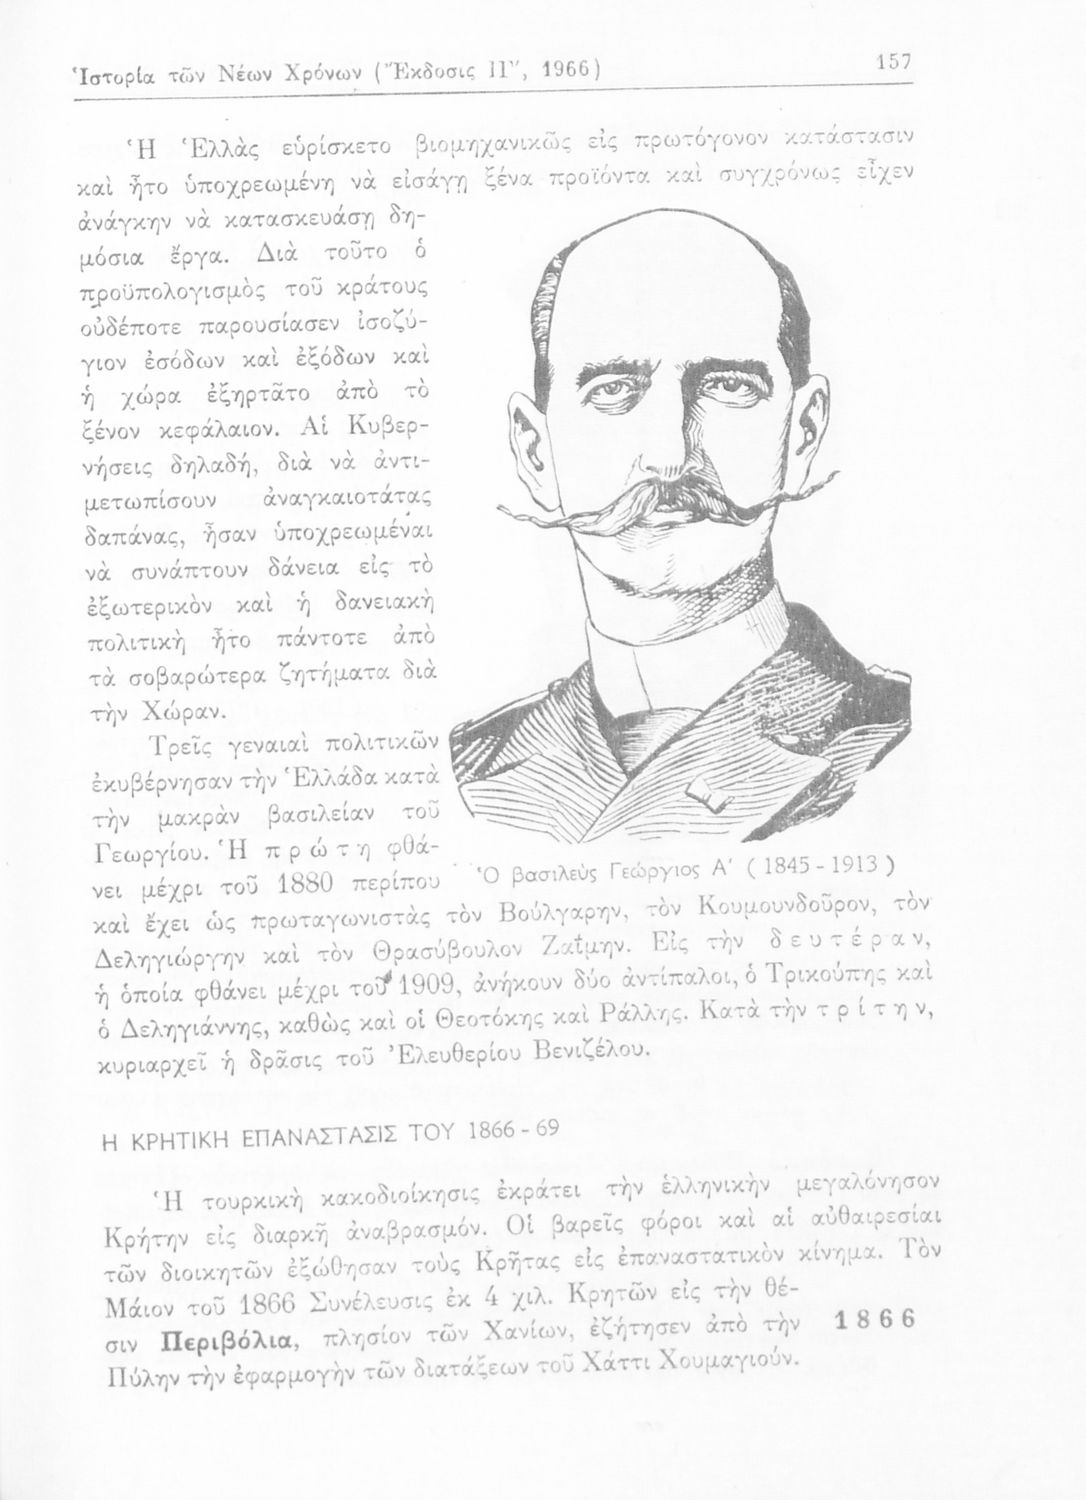 Ἱστορία τῶν Νέων Χρόνων (Ἔκδοσις Π", 1966)
157
Ἡ Ἑλλὰς εὑρίσκετο βιομηχανικῶς εἰς πρωτόγονον κατάστασιν
καὶ ἦτο ὑποχρεωμένη νὰ εἰσάγῃ ξένα προϊόντα καὶ συγχρόνως εἶχεν
ἀνάγκην νὰ κατασκευάσῃ δη-
μόσια ἔργα. Διὰ τοῦτο ὁ
προϋπολογισμὸς τοῦ κράτους
οὐδέποτε παρουσίασεν ἰσοζύ-
γιον ἐσόδων καὶ ἐξόδων καὶ
ἡ χώρα ἐξηρτᾶτο ἀπὸ τὸ
ξένον κεφάλαιον. Αἱ Κυβερ-
νήσεις δηλαδή, διὰ νὰ ἀντι-
μετωπίσουν ἀναγκαιοτάτας
δαπάνας, ἦσαν ὑποχρεωμέναι
νὰ συνάπτουν δάνεια εἰς τὸ
ἐξωτερικὸν καὶ ἡ δανειακὴ
πολιτικὴ ἦτο πάντοτε ἀπὸ
τὰ σοβαρώτερα ζητήματα διὰ
τὴν Χώραν.
Τρεῖς γενεαὶ πολιτικῶν
ἐκυβέρνησαν τὴν Ἑλλάδα κατὰ
τὴν μακρὰν βασιλείαν τοῦ
Γεωργίου. Ἡ πρώτη φθά-
νει μέχρι τοῦ 1880 περίπου
Ὁ βασιλεὺς Γεώργιος Α' (1845-1913)
καὶ ἔχει ὡς πρωταγωνιστὰς τὸν Βούλγαρην, τὸν Κουμουνδοῦρον, τὸν
Δεληγιώργην καὶ τὸν Θρασύβουλον Ζαΐμην. Εἰς τὴν δευτέραν,
ἡ ὁποία φθάνει μέχρι τοῦ 1909, ἀνήκουν δύο ἀντίπαλοι, ὁ Τρικούπης καὶ
ὁ Δεληγιάννης, καθὼς καὶ οἱ Θεοτόκης καὶ Ράλλης. Κατὰ τὴν τρίτην,
κυριαρχεῖ ἡ δρᾶσις τοῦ Ἐλευθερίου Βενιζέλου.
Η ΚΡΗΤΙΚΗ ΕΠΑΝΑΣΤΑΣΙΣ ΤΟΥ 1866-69
Ἡ τουρκικὴ κακοδιοίκησις ἐκράτει τὴν ἑλληνικὴν μεγαλόνησον
Κρήτην εἰς διαρκῆ ἀναβρασμόν. Οἱ βαρεῖς φόροι καὶ αἱ αὐθαιρεσίαι
τῶν διοικητῶν ἐξώθησαν τοὺς Κρῆτας εἰς ἐπαναστατικὸν κίνημα. Τὸν
Μάιον τοῦ 1866 Συνέλευσις ἐκ 4 χιλ. Κρητῶν εἰς τὴν θέ-
σιν Περιβόλια, πλησίον τῶν Χανίων, ἐζήτησεν ἀπὸ τὴν
1866
Πύλην τὴν ἐφαρμογὴν τῶν διατάξεων τοῦ Χάττι Χουμαγιούν.